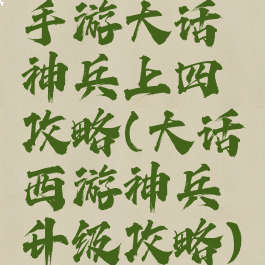 手游大话
神兵上四
攻略(大话
西游神兵
升级攻略)